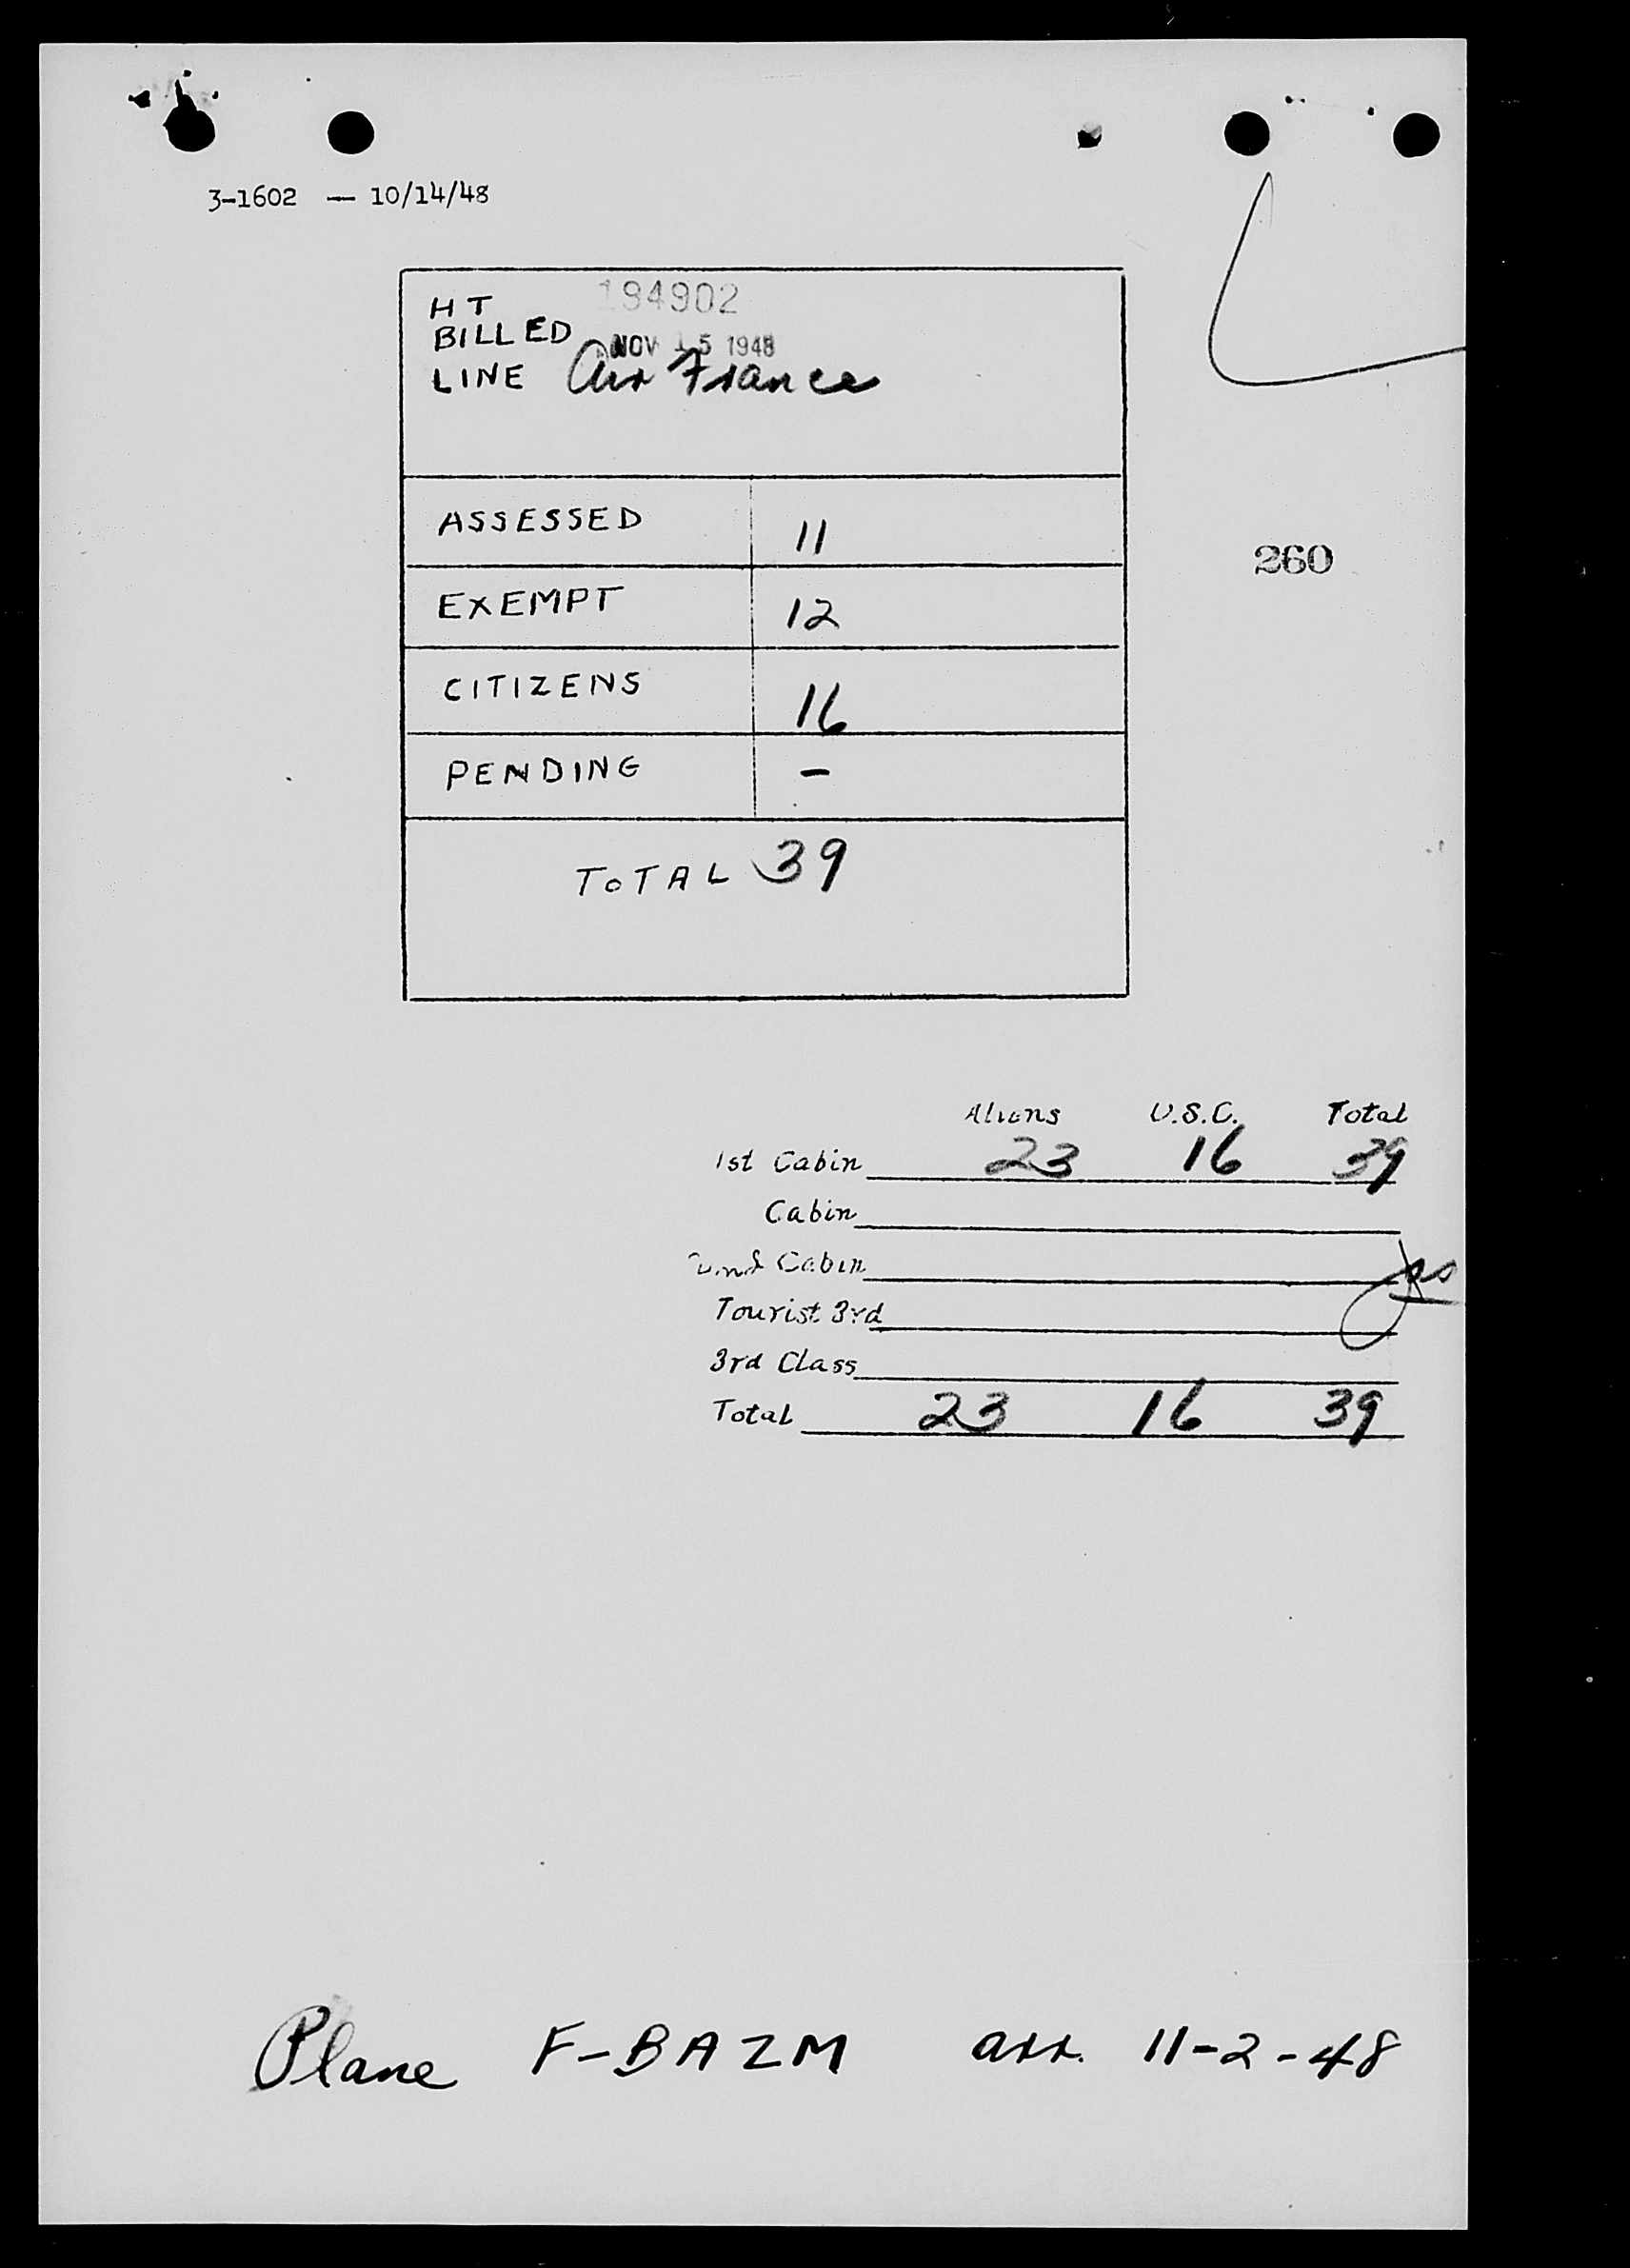 3-1602 — 10/14/48
HT 194902
BILLED NOV 15 1948
LINE Air France
ASSESSED 11
260
EXEMPT 12
CITIZENS 16
PENDING -
TOTAL 39
Aliens U.S.C. Total
1st Cabin 23 16 39
Cabin
2nd Cabin
Tourist 3rd
3rd Class
Total 23 16 39
Plane F-BAZM arr. 11-2-48